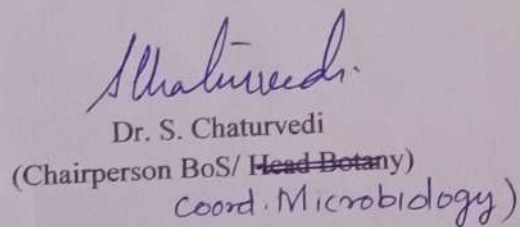 SChaturvedi.
Dr. S. Chaturvedi
(Chairperson BoS/ Head Botany)
Coord. Microbiology)